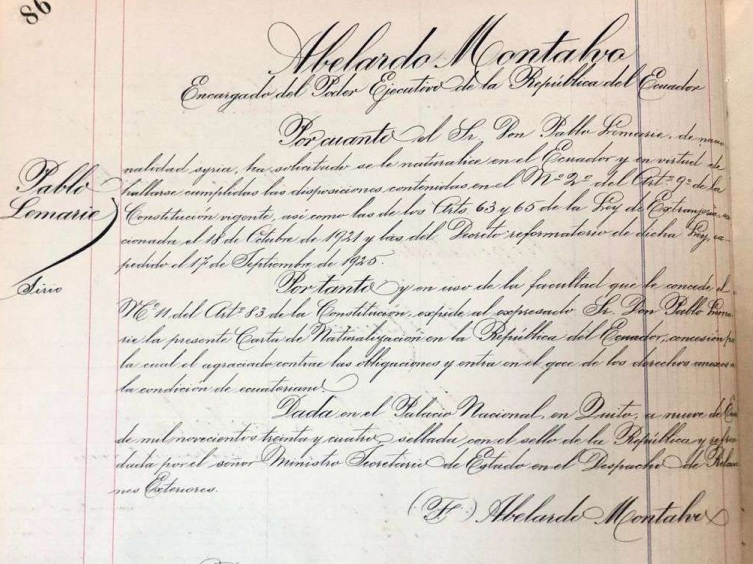 86
Abelardo Montalvo
Encargado del Poder Ejecutivo de la República del Ecuador
Por cuanto el Sr. Don Pablo Lemarie, de nacio
nalidad syria, ha solicitado se le naturalice en el Ecuador y en virtud de
Pablo
Lemarie
hallarse cumplidas las disposiciones contenidas en el Nº 2º del Artº 9º de la
Constitución vigente, así como las de los Arts. 63 y 65 de la Ley de Extranjería,
cionada el 18 de Octubre de 1921 y las del Decreto reformatorio de dicha Ley,
pedido el 17 de Septiembre de 1925.
Sirio
Por tanto y en uso de la facultad que le concede el
Nº 11 del Artº 83 de la Constitución, expide al expresado Sr. Don Pablo Lema
rie la presente Carta de Naturalización en la República del Ecuador, concesión
la cual el agraciado contrae las obligaciones y entra en el goce de los derechos anexos a
la condición de ecuatoriano.
Dada en el Palacio Nacional, en Quito, a nueve de
de mil novecientos treinta y cuatro, sellada con el sello de la República y refren
dada por el señor Ministro Secretario de Estado en el Despacho de Relacio
nes Exteriores.
(F) Abelardo Montalvo